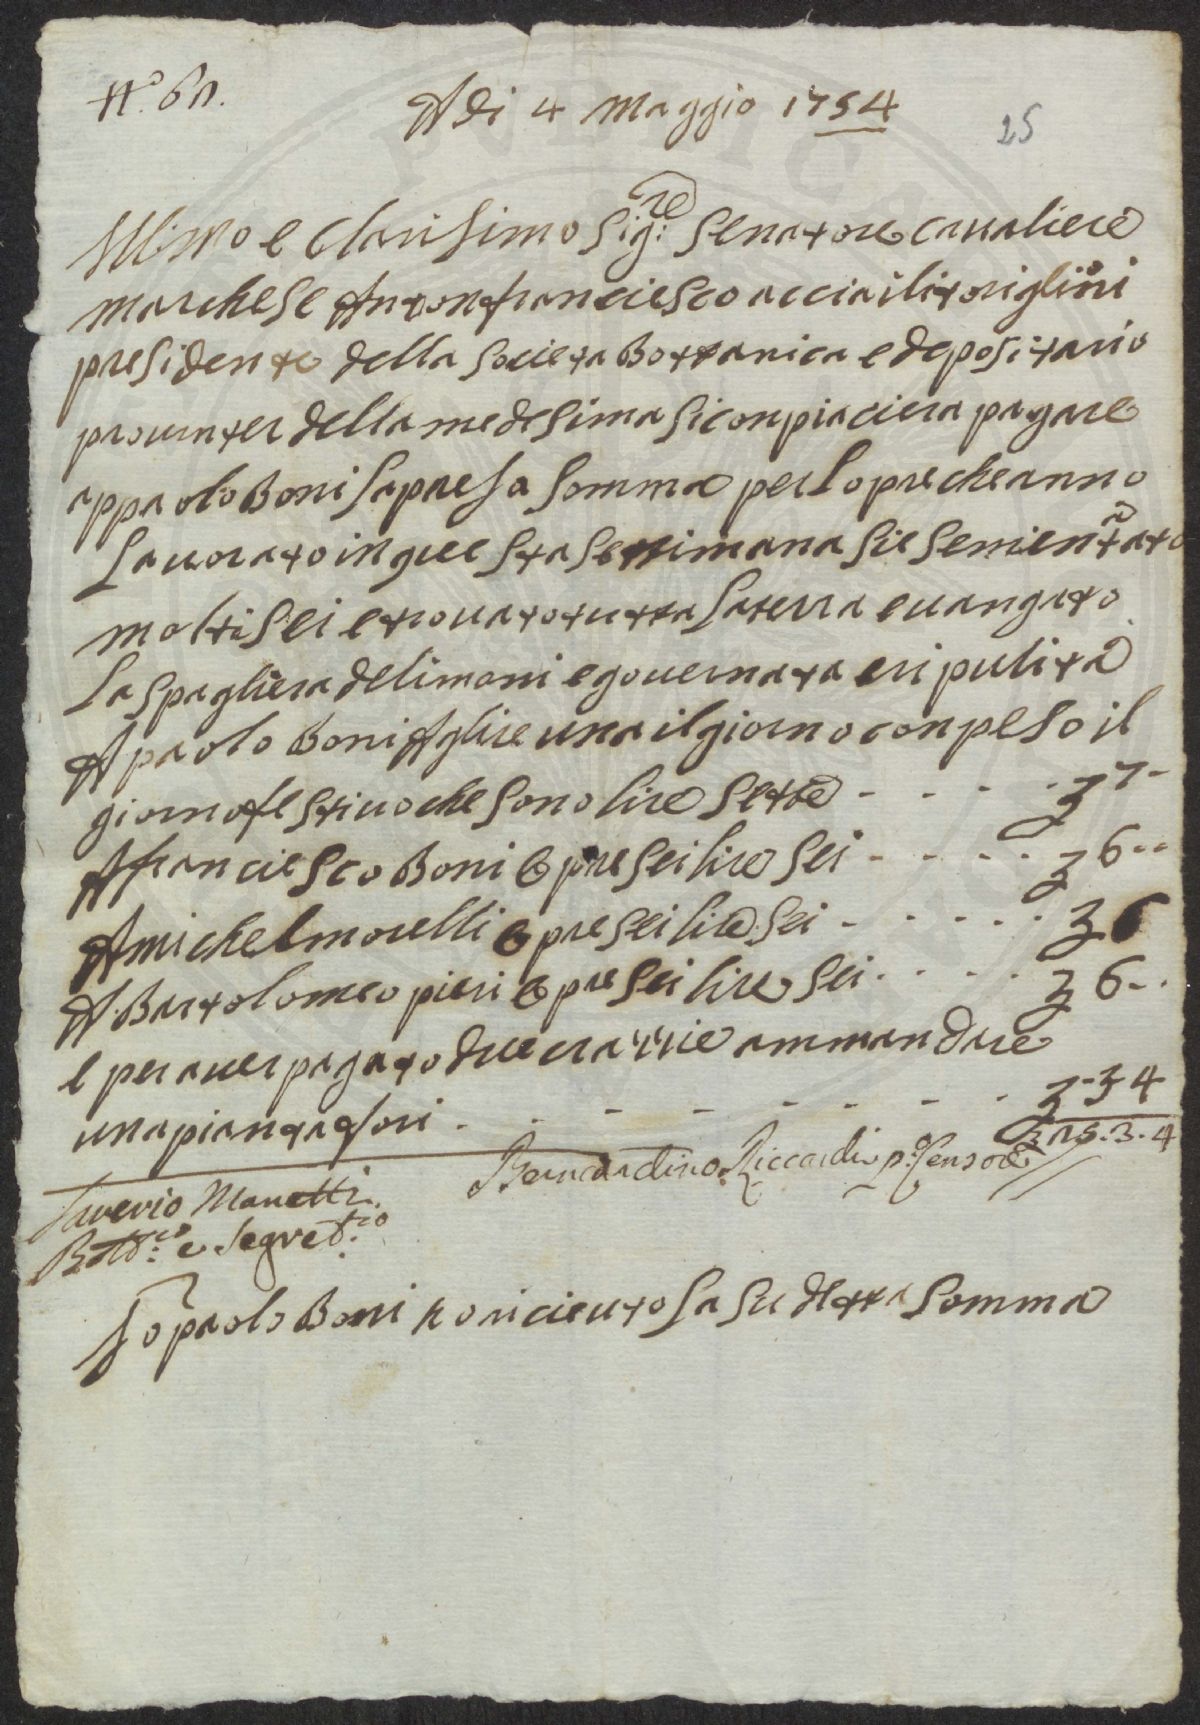 N.o 61.
A di 4 Maggio 1754
25
Ill.mo e Clarisimo Sig:re Senatore cavaliere
marchese Antonfranciesco acciaiuli toriglini
presidente della Societa Bottanica e depositario
prointer della medesima si conpiaciera pagare
appaolo Boni la presa Somma per lopre che anno
Lavorato in questa settimana si e Sementato
molti Sei e trovato tutta la terra e vangato
La Spagliera de limoni e governata e ripulita
A paolo Boni A lire una il giorno conpeso il
giorno festivo che sono lire sette - - - - 3 7 -
A franciesco Boni O pre sei lire Sei - - - - 3 6 - -
A michel morelli O pre sei lire Sei - - - - - 3 6
A Bartolomeo pieri O pre sei lire Sei - - - - 3 6 - -
e per aver pagato due crazzie ammandare
una pianta fori - - - - - - - - 3 - 3 4
3 25. 3. 4
Bernardino Riccardi p.o Censore
Saverio Manetti
Bott.co e Segret.rio
Io paolo Boni ho riciuto la su detta Somma